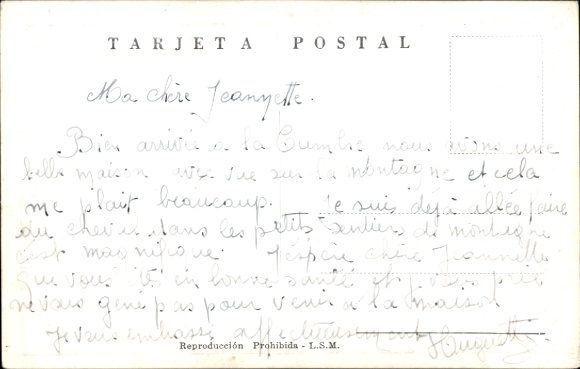 TARJETA POSTAL
Ma chère Jeannette.
Bien arrivée a la Cumbre nous avons une
belle maison avec vue sur la montagne et cela
me plait beaucoup. Je suis déjà allée faire
du cheval dans les petits sentiers de montagne
c'est magnifique. J'espère chère Jeannette
que vous êtes en bonne santé et je vous prie
ne vous gené pas pour venir a la maison
Je vous embrasse affectueusement Huguette
Reproducción Prohibida - L.S.M.